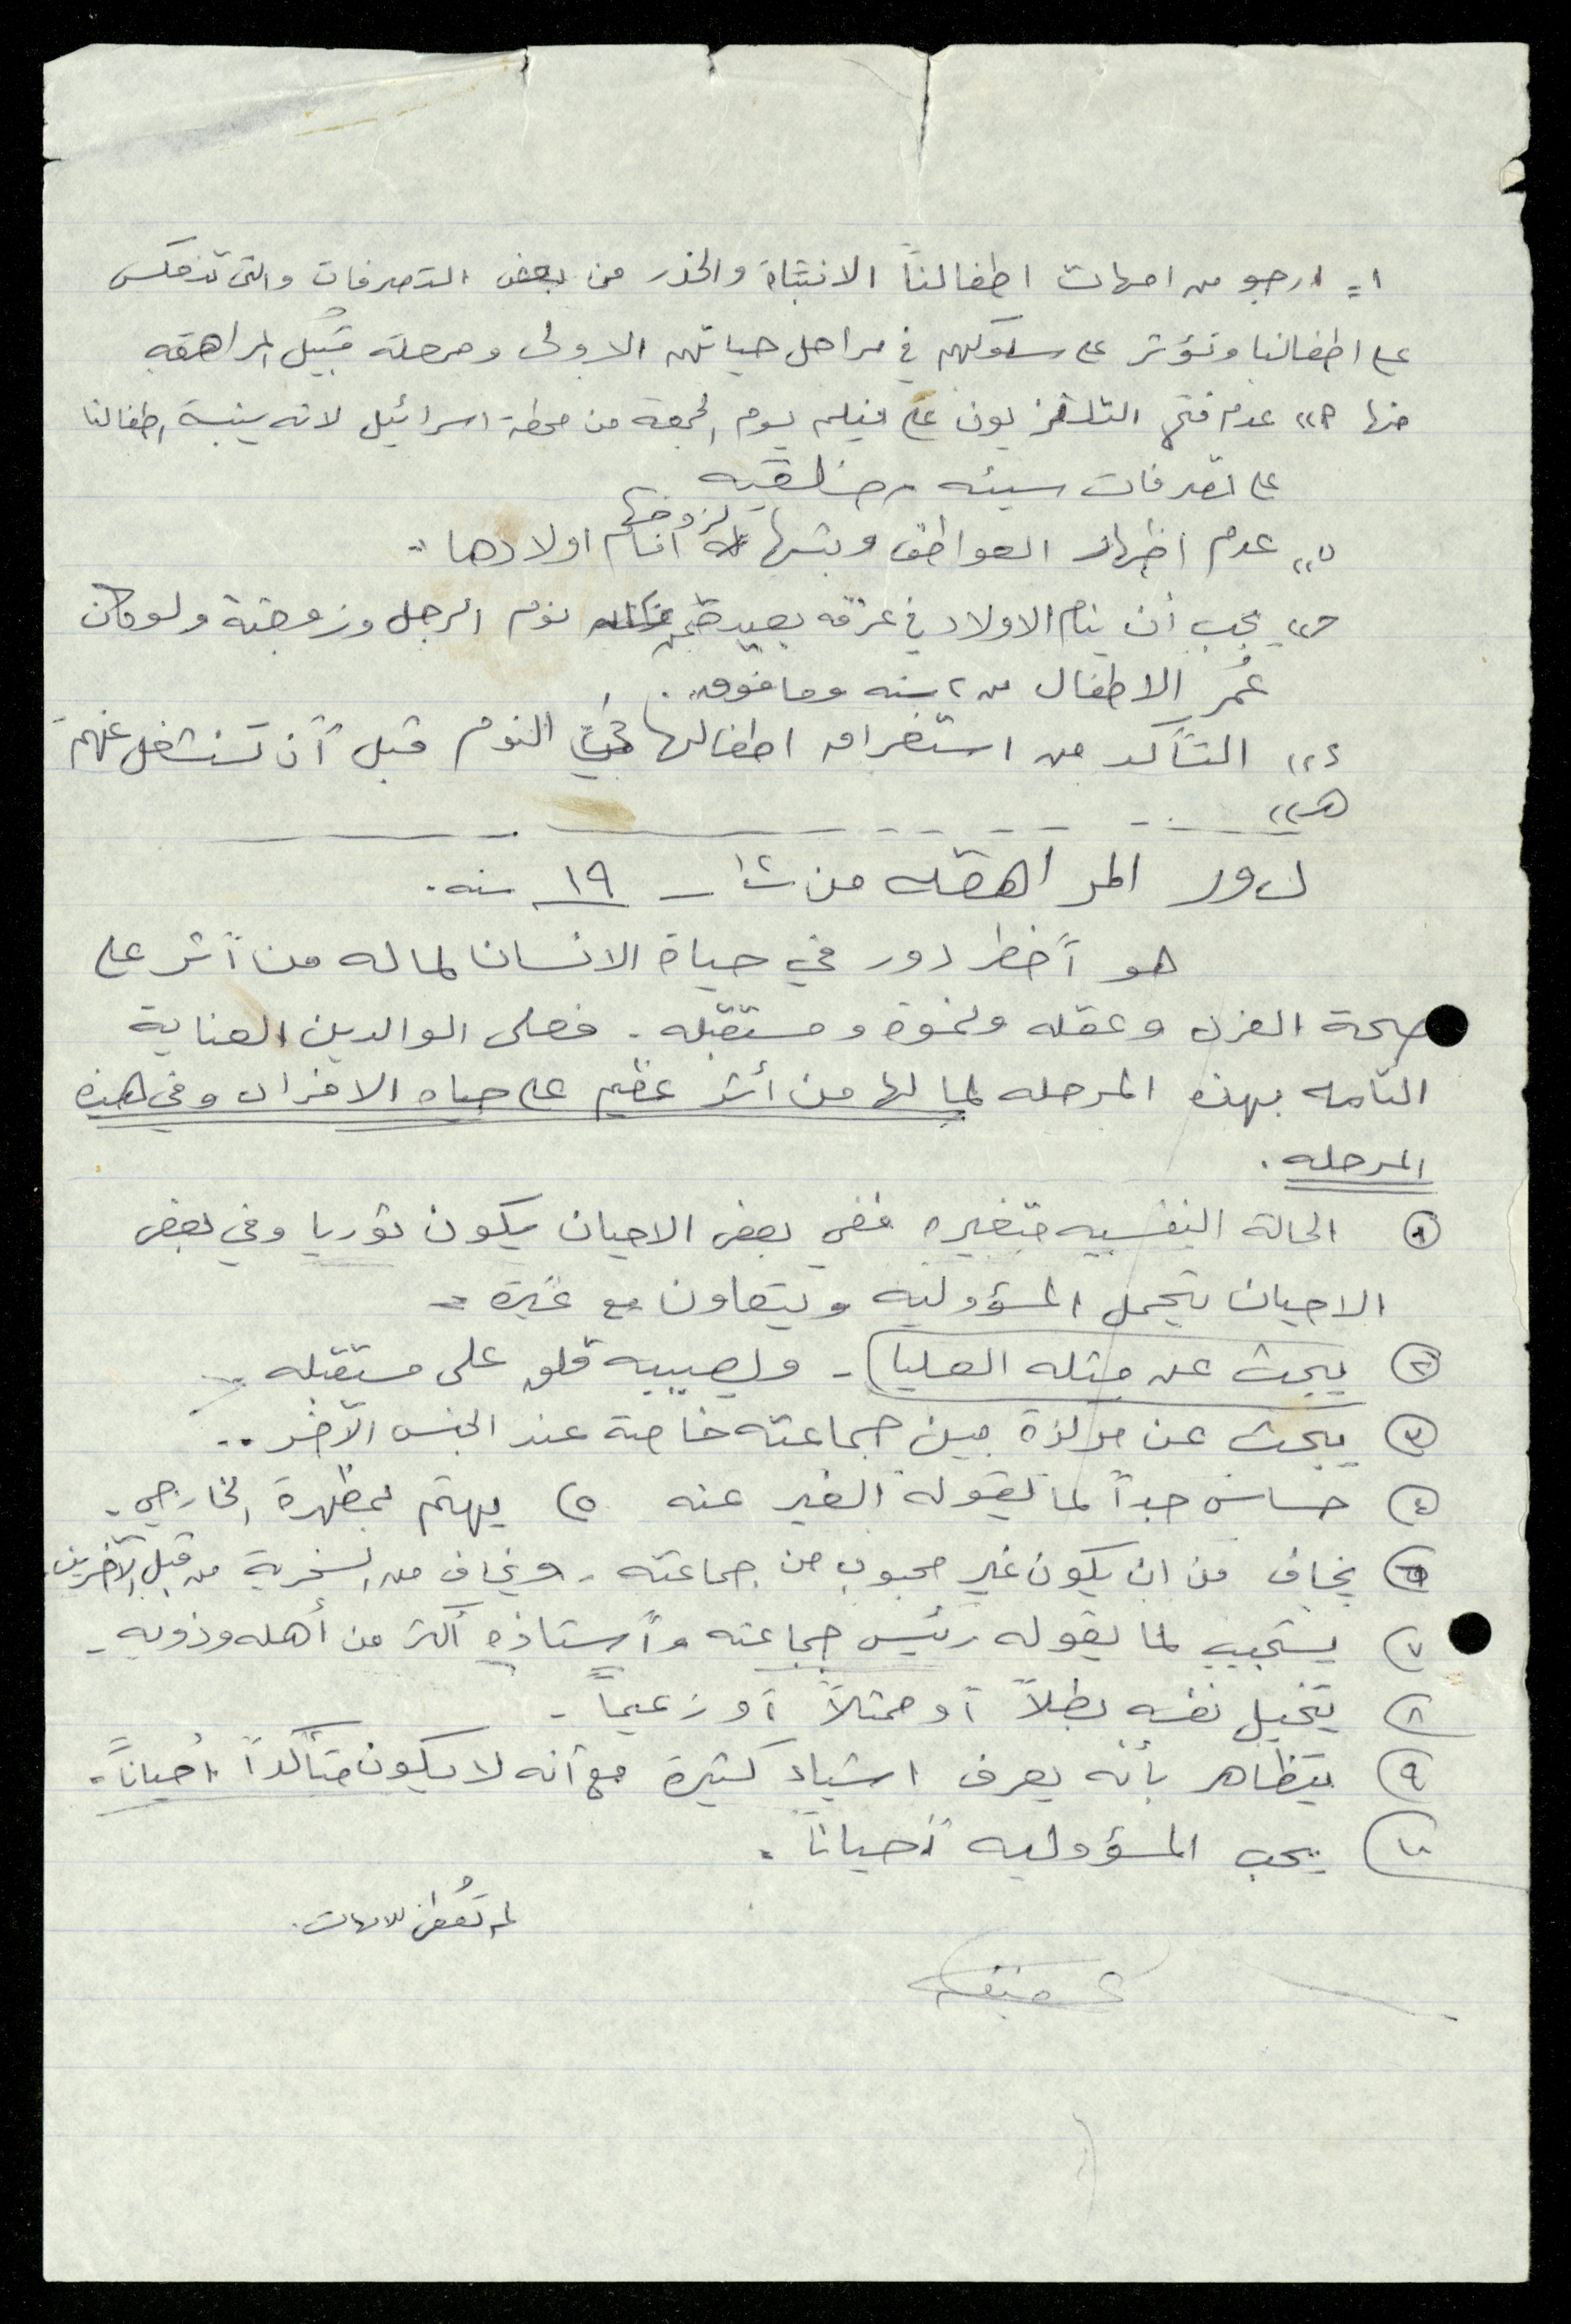 ١= ارجو من امهات اطفالناً الانتباة والحذر من بعض التصرفات والتى تنعكس
على اطفالنا وتؤثر على سلوكهم في مراحل حياتهم الاولى ومرحلة قُبيل المراهقه
منها ٩" عدم فتح التلفزيون على فيلم يوم الجمعة من محطة اسرائيل لانه ينبة اطفالنا
على تصرفات سيئه
ب" عدم اظهار العواطف وبثها لزوجها أمام اولادها"
ج" يجب أن ينام الاولاد في غرفه بعيدة عن نوم الرجل وزوجتة ولو كان
عُمر الاطفال من ٢ سنه وما فوق.
د" التأكد من استغراق اطفالها في النوم قبل أن تنشغل عنهم
هـ"
دور المراهقه من ١٢ – ١٩ سنه.
هو أخطر دور في حياة الانسان لما له من أثر على
صحة الفرد وعقله ونموة ومستقبله. فعلى الوالدين العناية
التامه بهذه المرحله لما لها من أثر عظيم على حياه الافراد وفي هذه
المرحله.
١ الحالة النفسيه متغيره ففي بعض الاحيان يكون ثوريا وفي بعض
الاحيان يتحمل المسؤوليه ويتعاون مع غيرة -
٢ يبحث عن مثله العليا - ويصيبه قلق على مستقبله -
٣ يبحث عن مركزة بين جماعته خاصة عند الجنس الآخر ..
٤ حساس جداً لما يقولة الغير عنه ٥) يهتم بمظهرة الخارجي -
٦ يخاف من ان يكون غير محبوب من جماعته - ويخاف من السخرية من قبل الآخرين
٧) يستجيب لما يقوله رئيس جماعته وأستاذه أكثر من أهله وذويه -
٨) يتخيل نفسه بطلاً أو ممثلاً أو زعيماً -
٩) يتظاهر بأنه يعرف اشياء كثيرة مع أنه لا يكون متأكداً أحياناً.
١٠) يحب المسؤوليه أحياناً .
لم تُعطَ للامهات.